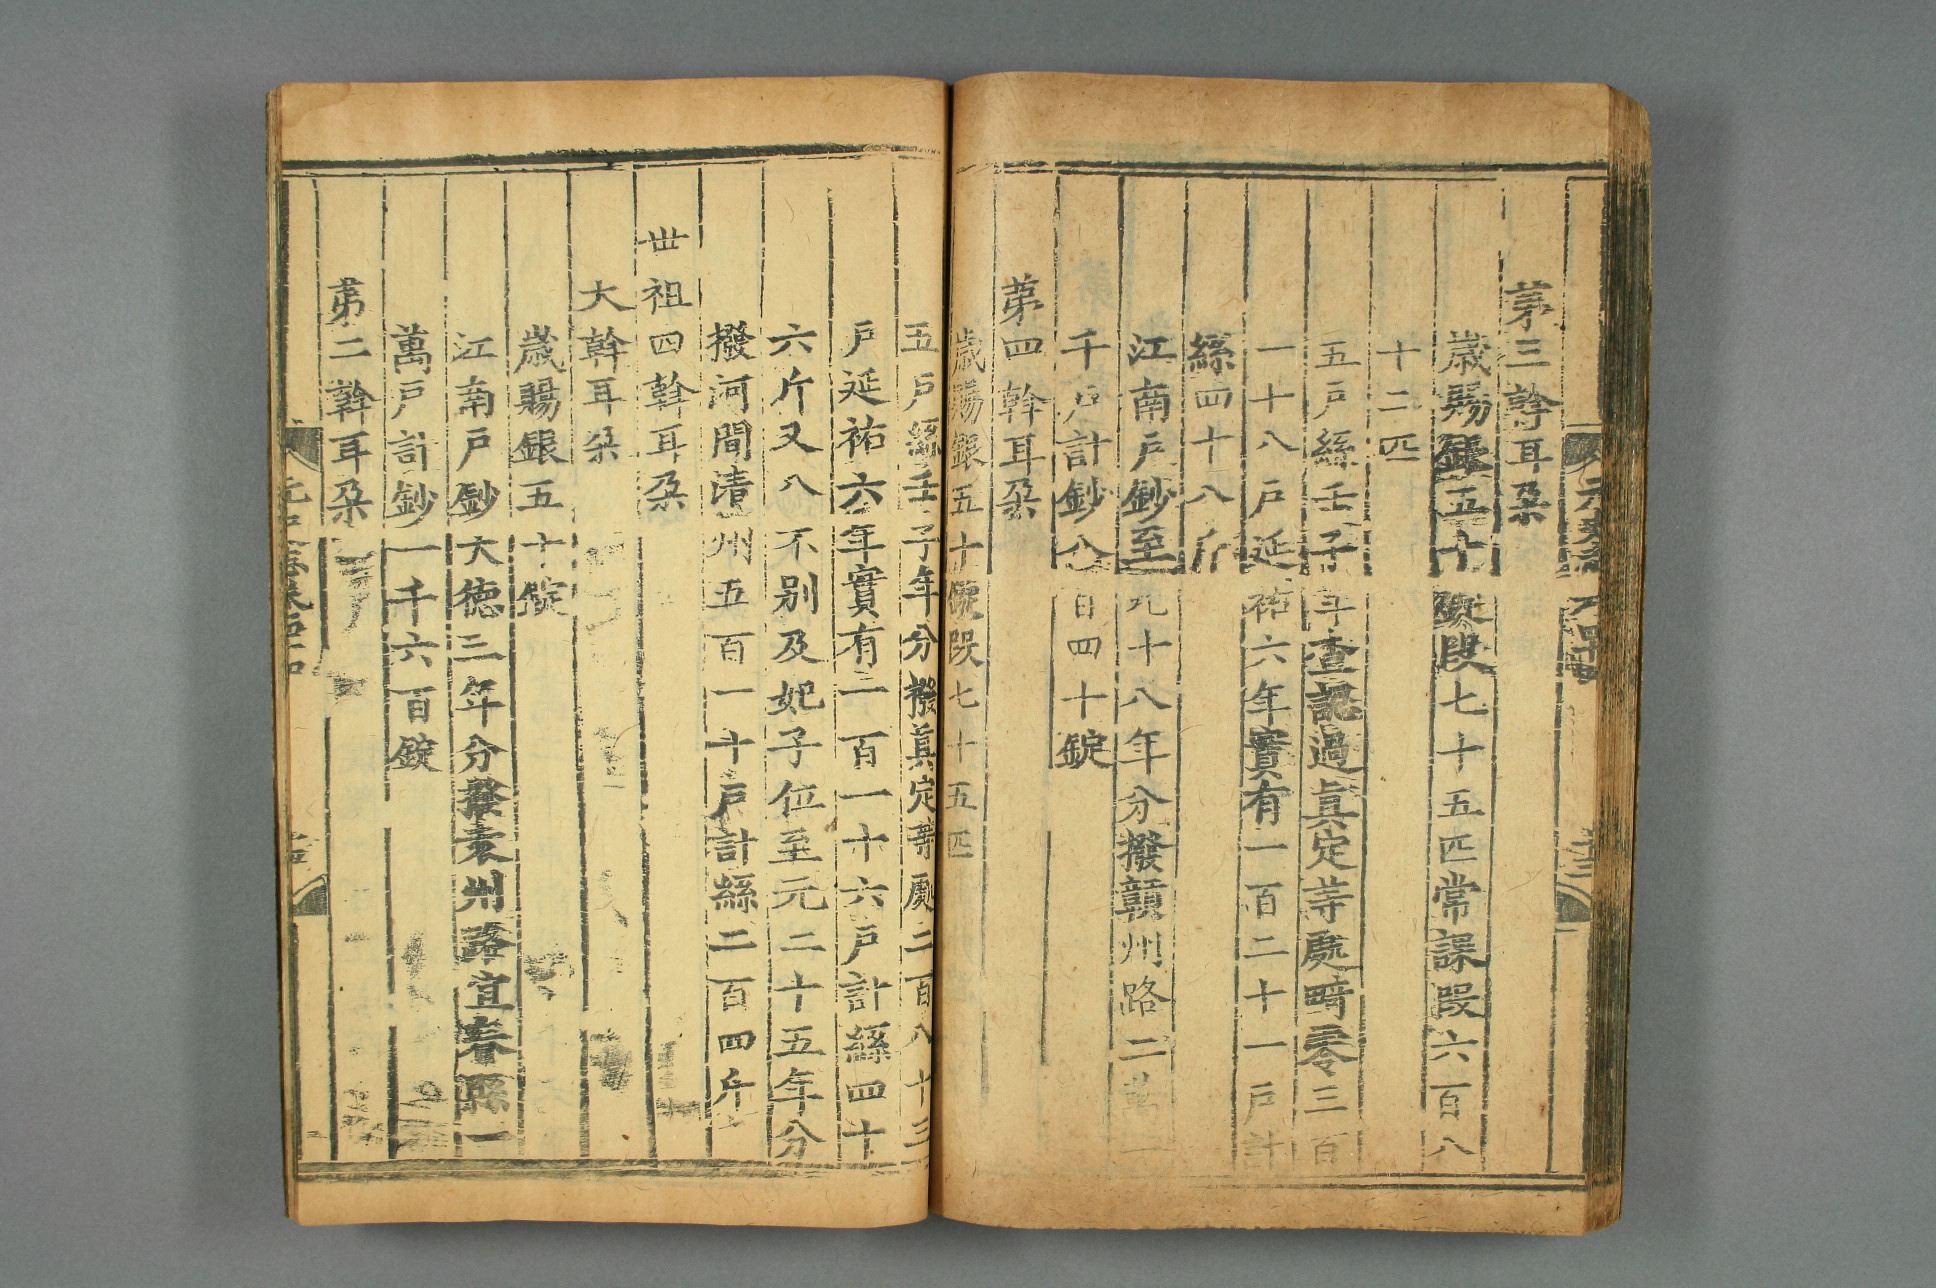 第三斡耳朵
歲賜銀五十錠段七十五匹常課段六百八
十二匹
五戶絲壬子年查認過眞定等處畸零三百
一十八戶延祐六年實有一百二十一戶計
絲四十八斤
江南戶鈔至元十八年分撥贛州路二萬一
千戶計鈔八百四十錠
第四斡耳朵
歲賜銀五十錠段七十五匹
五戶絲壬子年分撥眞定等處二百八十三
戶延祐六年實有一百一十六戶計絲四十
六斤又八不别及妃子位至元二十五年分
撥河間清州五百一十戶計絲二百四斤
世祖四斡耳朵
大斡耳朵
歲賜銀五十錠
江南戶鈔大德三年分撥袁州路宜春縣一
萬戶計鈔一千六百錠
第二斡耳朵